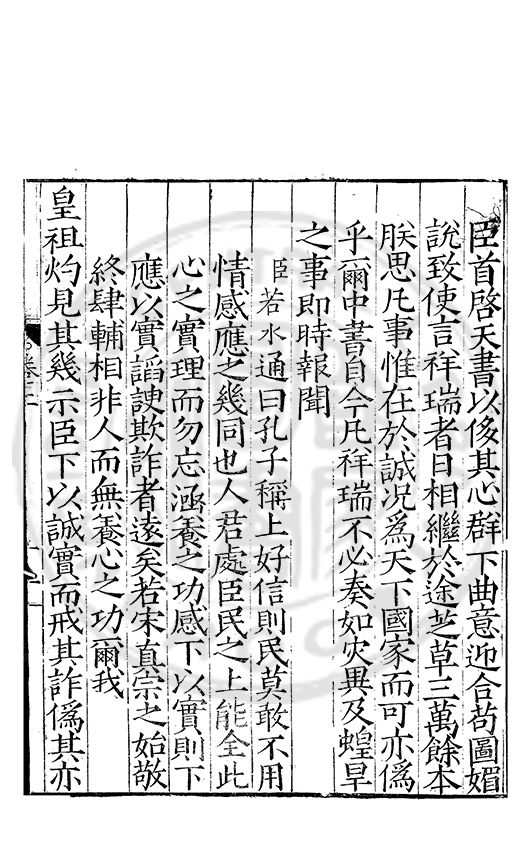 臣首啓天書以侈其心群下曲意迎合苟圖媚
說致使言祥瑞者日相繼於途芝草三萬餘本
朕思凡事惟在於誠况爲天下國家而可亦僞
乎爾中書自今凡祥瑞不必奏如灾異及蝗旱
之事即時報聞
臣若水通曰孔子稱上好信則民莫敢不用
情感應之幾同也人君處臣民之上能全此
心之實理而勿忘涵養之功感下以實則下
應以實謟諛欺詐者遠矣若宋真宗之始敬
終肆輔相非人而無養心之功爾我
皇祖灼見其幾示臣下以誠實而戒其詐僞其亦
卷二